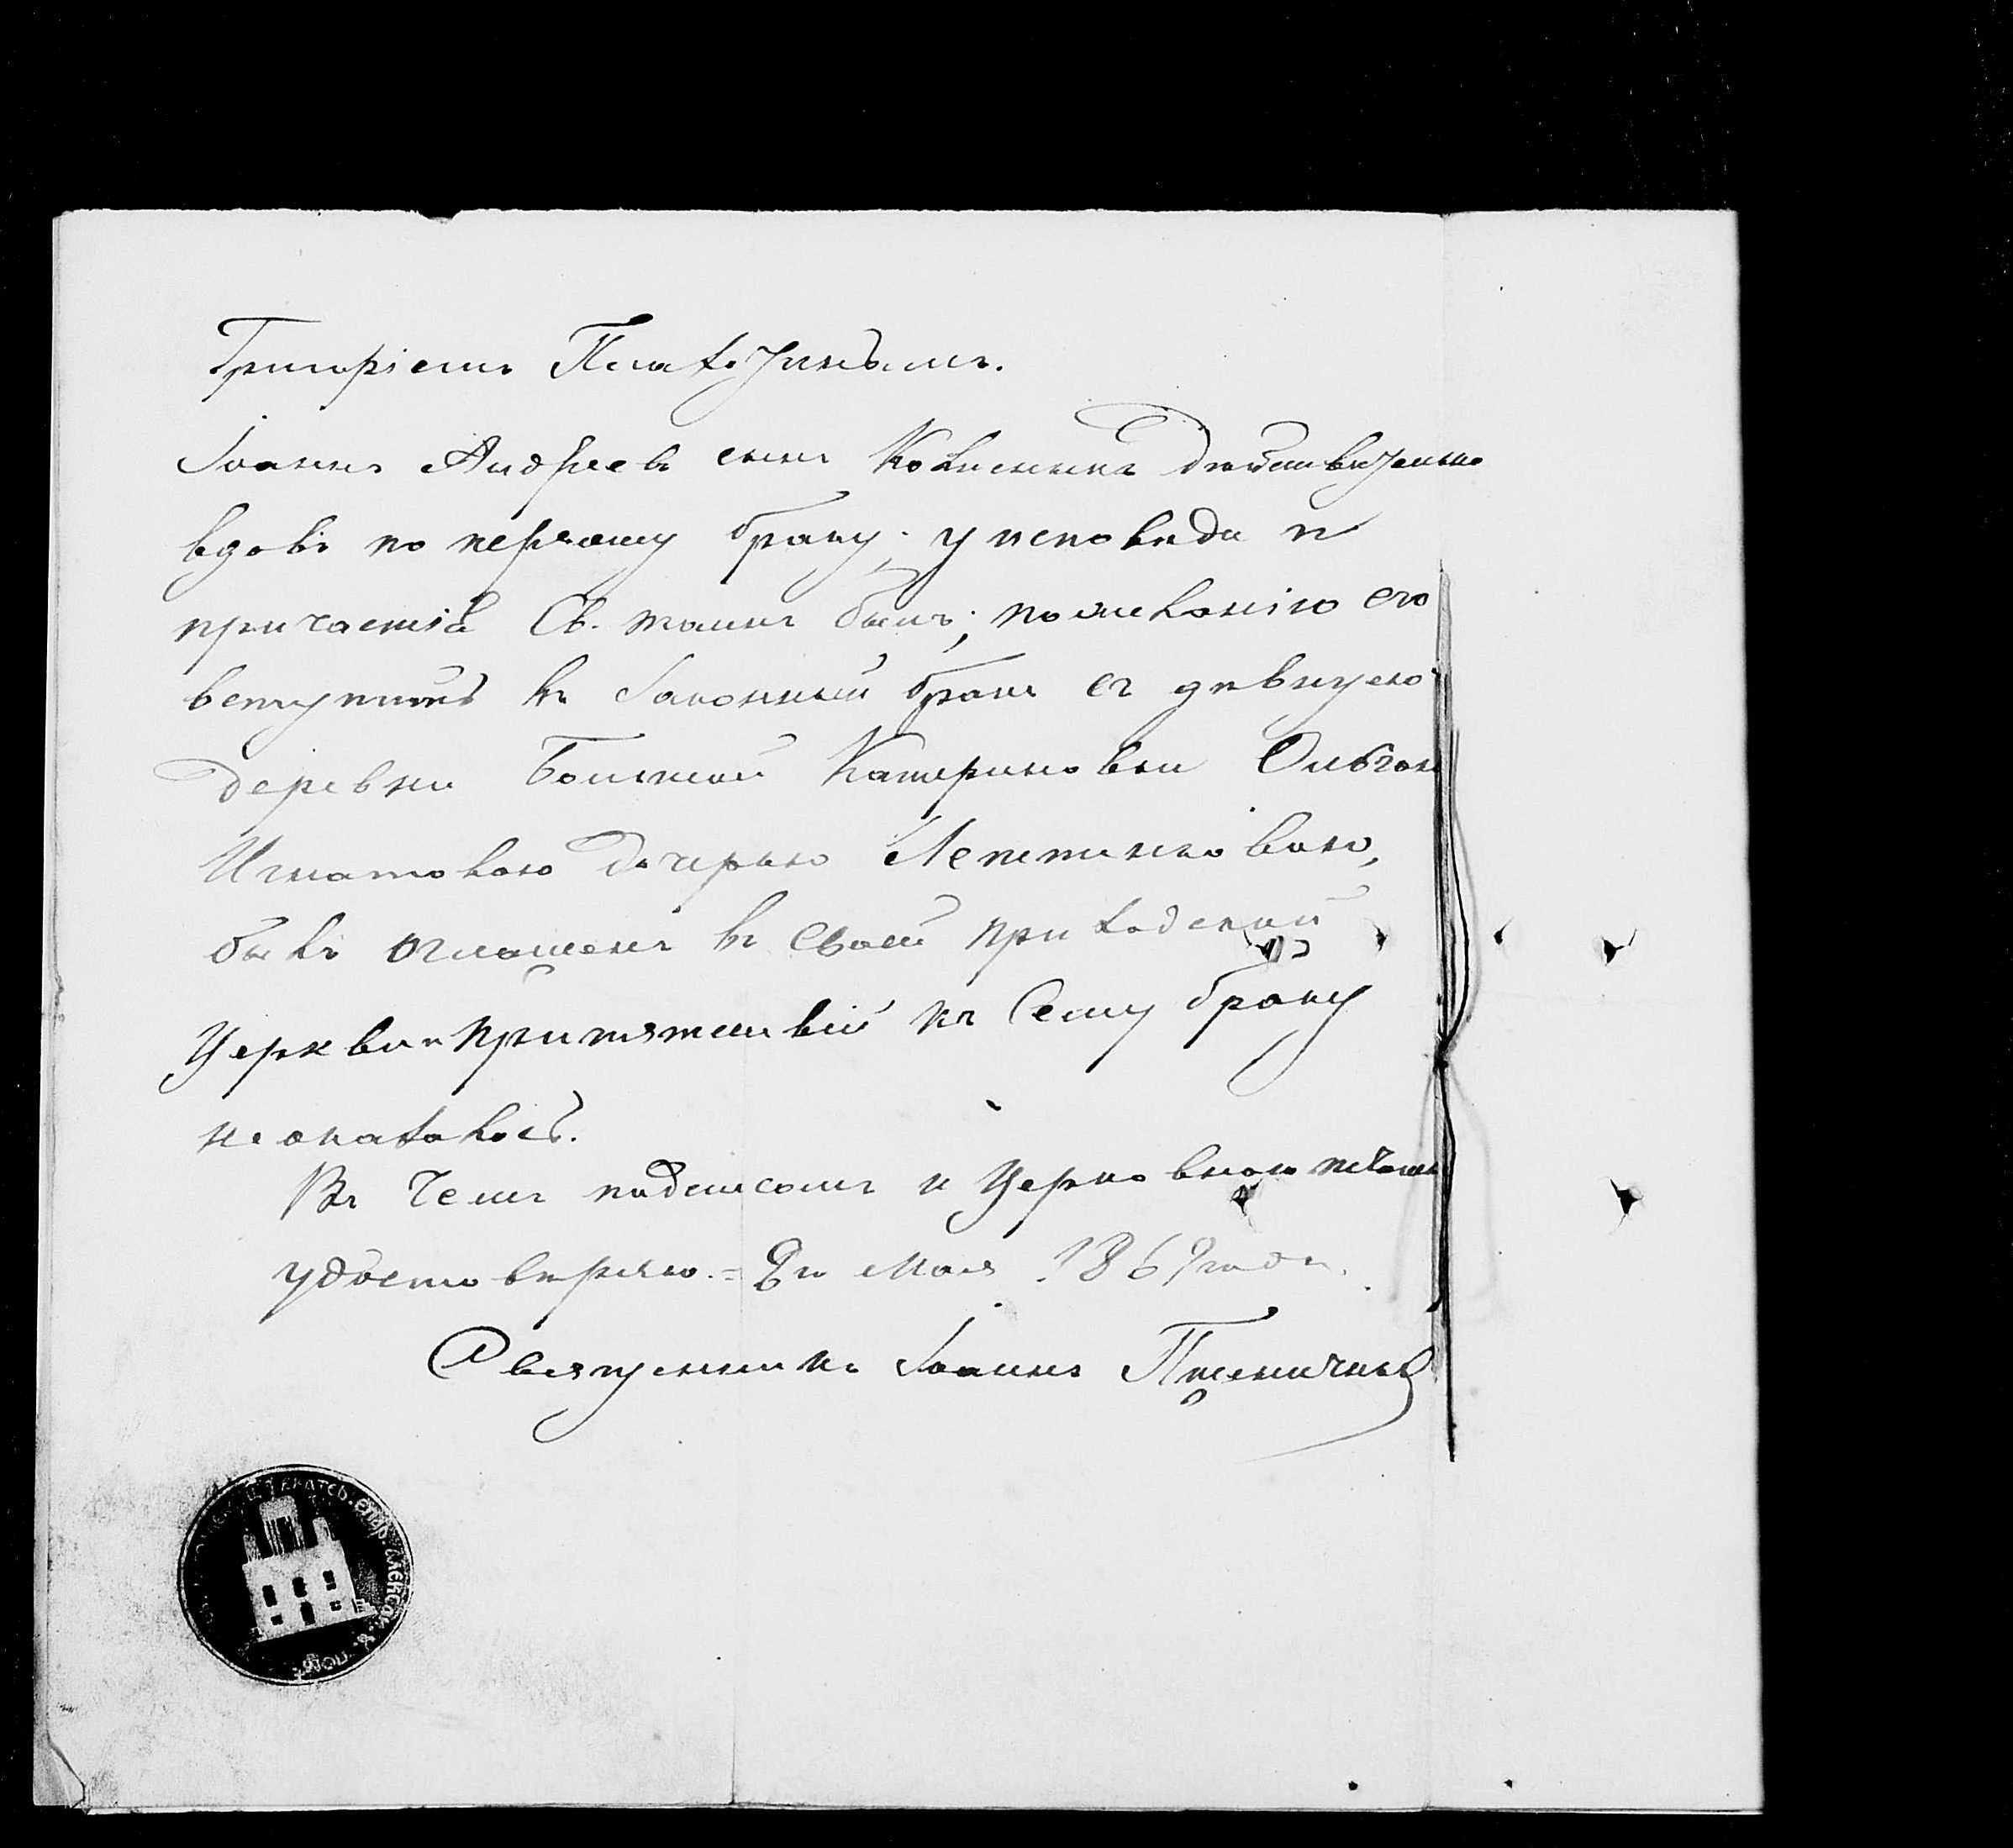 Григоріемъ
Іоаннъ Андреевъ сынъ дѣйствительно
вдовъ по первому браку; у исповѣди и
причастія Св. таинъ былъ; по желанію его
вступить въ законный бракъ съ дѣвицею
деревни Большой Катериновки Ольгою
Игнатовою дочерью
былъ оглашенъ въ своей приходской
Церкви и притятствій къ сему браку
не оказалось.
Въ чемъ подписомъ и церковною печатью
удостовѣряю. = Мая 186 года.
Священникъ Іоаннъ Пшеничный